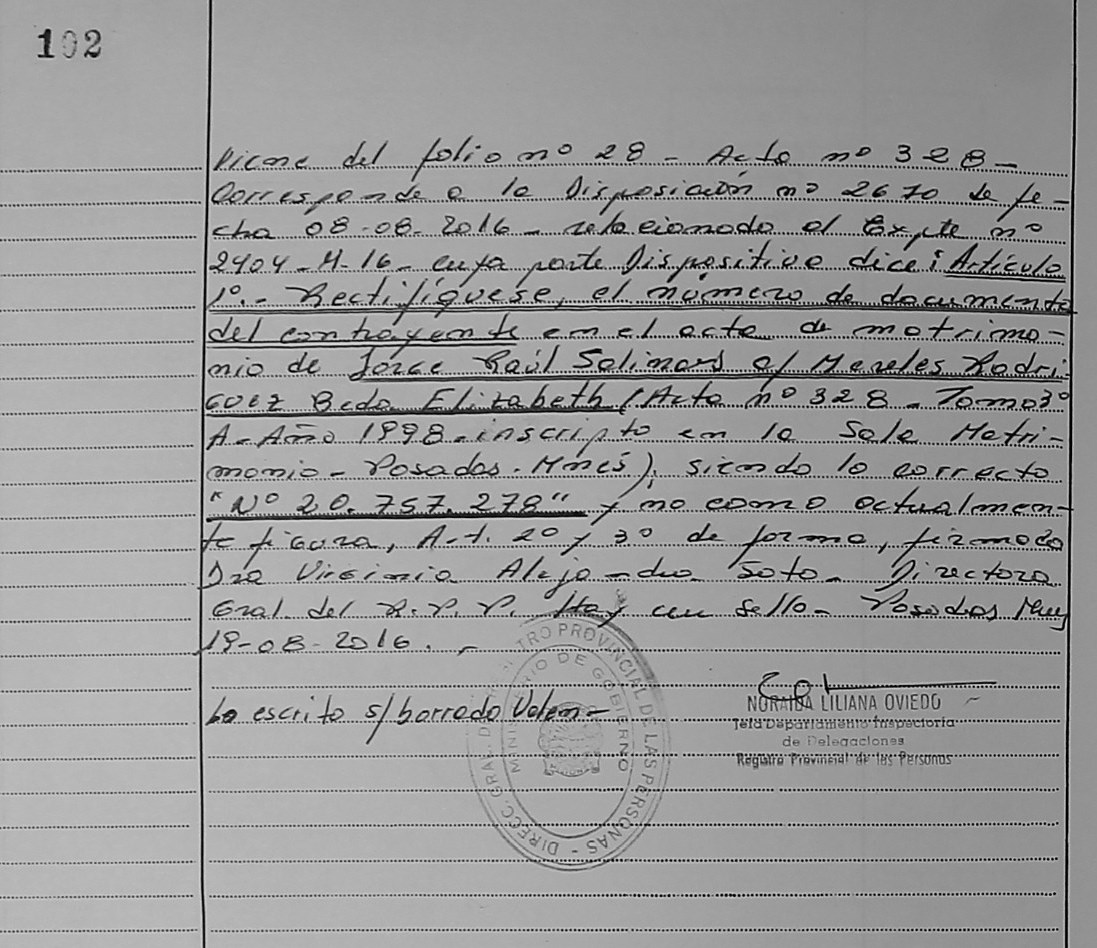 102
Viene del folio nº 28 - Acta nº 328 -
Corresponde a la Disposición nº 2670 de fe-
cha 08-08-2016 - relacionado al Expte nº
2404-M-16- cuya parte Dispositiva dice: Artículo
1º.- Rectifíquese, el número de documento
del contrayente en el acta de matrimo-
nio de Jorge Raúl c/ Rodrí-
guez Beda Elizabeth (Acta nº 328 - Tomo 3º
A- Año 1998 - inscripto en la Sala Matri-
monio - Posadas. Mnes), siendo lo correcto
"Nº 20.757.278" y no como actualmen-
te figura, Art. 2º y 3º de forma, firmado
Dra Virginia Alejandra Soto - Directora
Gral del R.P.P. Hay un sello - Posadas
19-08-2016. -
Lo escrito s/ borrado Valen -
NORAIDA LILIANA OVIEDO
Jefa Departamento Inspectoria
de Delegaciones
Registro Provincial de las Personas
DIRECC. GRAL. TRO PROVINCIAL DE LAS PERSONAS -
MINISTERIO DE GOBIERNO